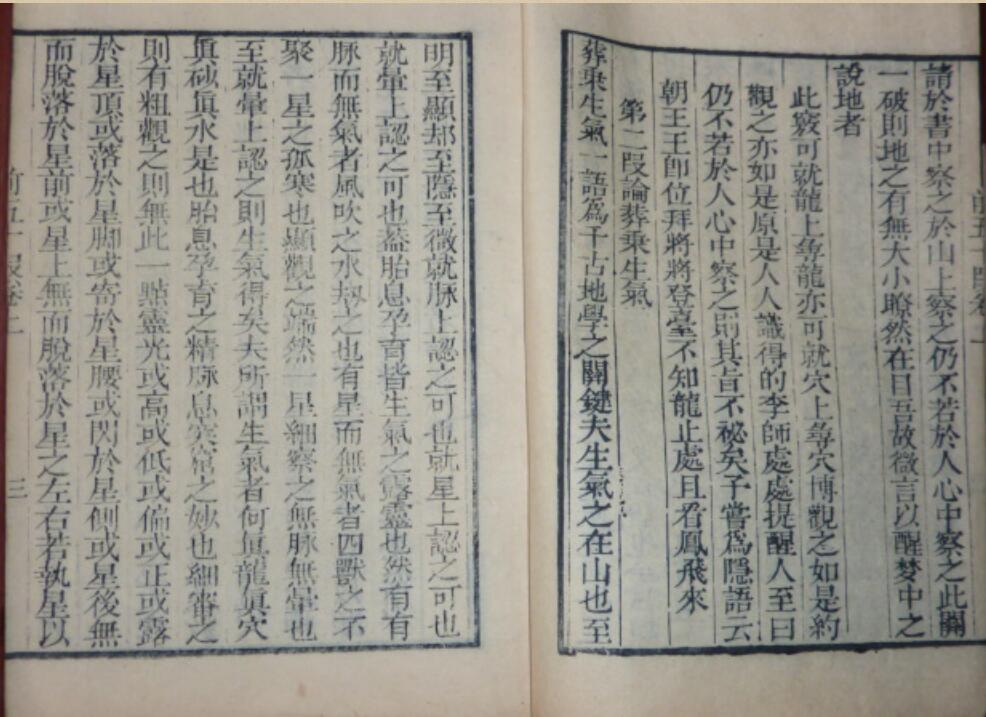 請於書中察之於山上察之仍不若於人心中察之此關
一破則地之有無大小瞭然在目吾故微言以醒夢中之
說地者
此竅可就龍上尋龍亦可就穴上尋穴博觀之如是約
觀之亦如是原是人人識得的李師處處提醒人至曰
仍不若於人心中察之則其旨不祕矣予嘗爲隱語云
朝王王卽位拜將將登臺不知龍止處且看鳳飛來
第二段論葬乘生氣
葬乘生氣一語爲千古地學之關鍵夫生氣之在山也至
明至顯却至隱至微就脉上認之可也就星上認之可也
就暈上認之可也葢胎息孕育皆生氣之露靈也然有有
脉而無氣者風吹之水刼之也有星而無氣者四獸之不
聚一星之孤寒也顯觀之端然一星細察之無脉無暈也
至就暈上認之則生氣得矣夫所謂生氣者何眞龍眞穴
眞砂眞水是也胎息孕育之精脉息窩窟之妙也細審之
則有粗觀之則無此一點靈光或高或低或偏或正或露
於星頂或落於星脚或寄於星腰或閃於星側或星後無
而脫落於星前或星上無而脫落於星之左右若執星以
前五十段卷二
三